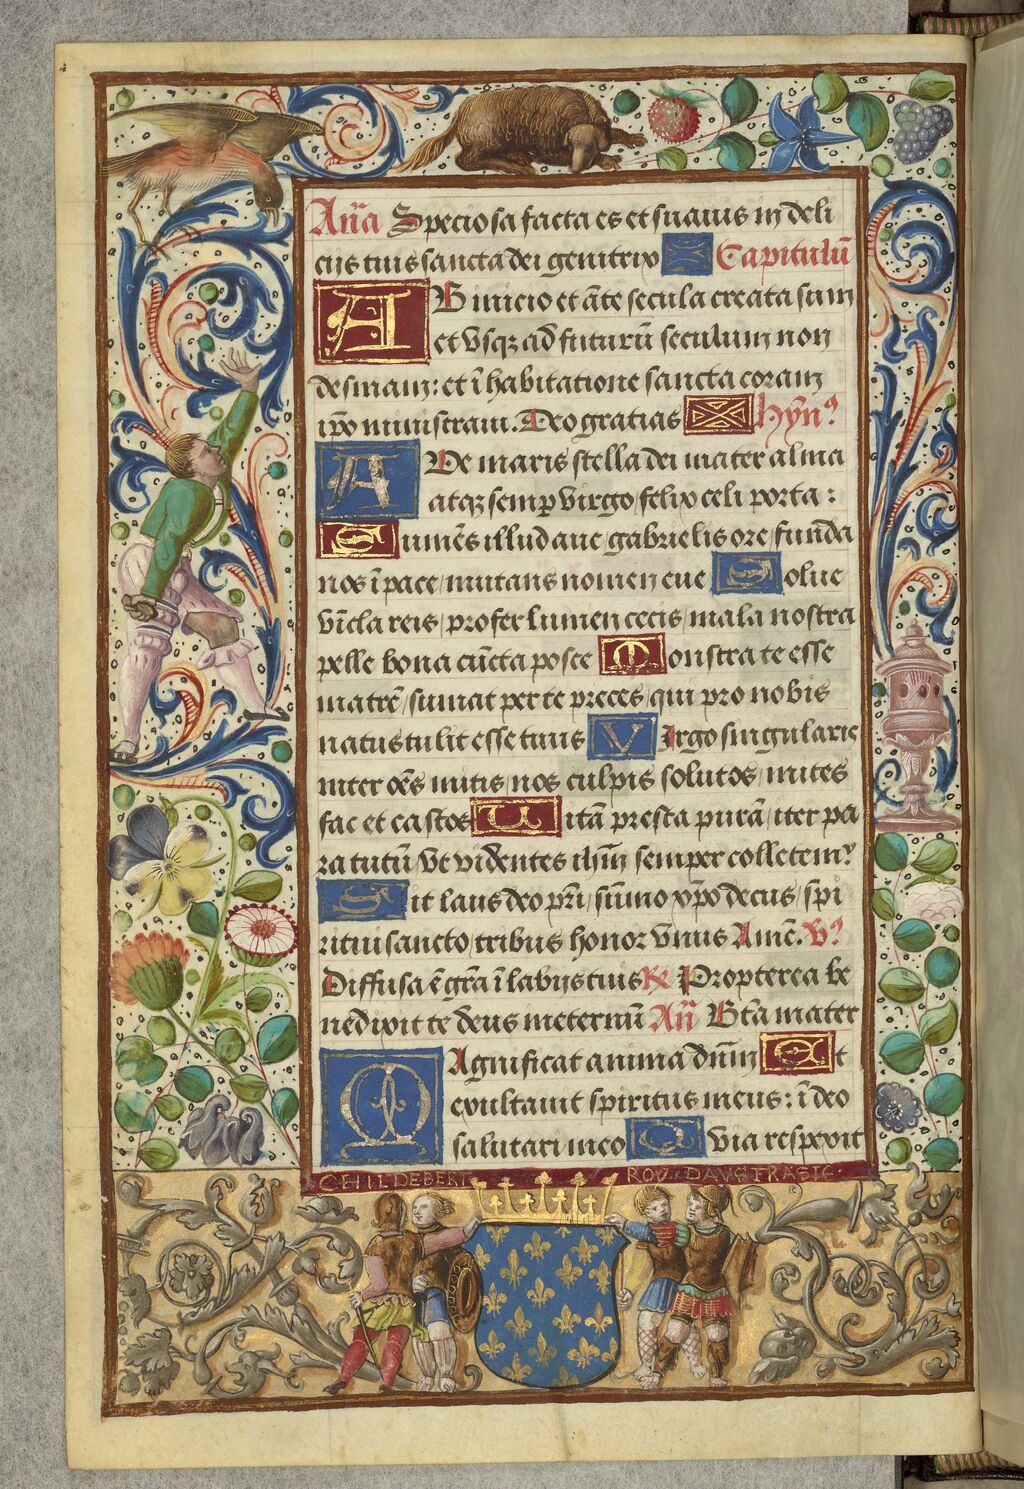 Añа Speciosa facta es et suauis in deli
ciis tuis sancta dei genitrix Capitulū
AB inicio et āte secula creata sum
et vsqꝫ ad futurū seculum non
desinam: et ī habitatione sancta coram
ipō ministraui. Deo gratias hyn⁹
AVe maris stella dei mater alma
atqꝫ semp virgo / felix celi porta:
Sumēs illud aue gabrielis ore / funda
nos ī pace / mutans nomen eue Solue
vīcla reis / profer lumen cecis / mala nostra
pelle bona cūcta posce Monstra te esse
matrē / sumat per te preces / qui pro nobis
natus tulit esse tuus VIrgo singularis
inter oēs mitis / nos culpis solutos / mites
fac et castos Uitā presta purā / iter pa
ra tutū / Vt videntes ihm̄ semper colletemꝰ
Sit laus deo pr̄i / sūmo xp̄o decus / spi
ritui sancto / tribus honor vnus Amē. V⁹
Diffusa ē gr̄a ī labijs tuis R Propterea be
nedixit te deus in eternū Añ Bt̄a mater
MAgnificat anima dn̄m Et
exultauit spiritus meus: ī deo
salutari meo Quia respexit
CHILDEBERT ROY DAVSTRASIE